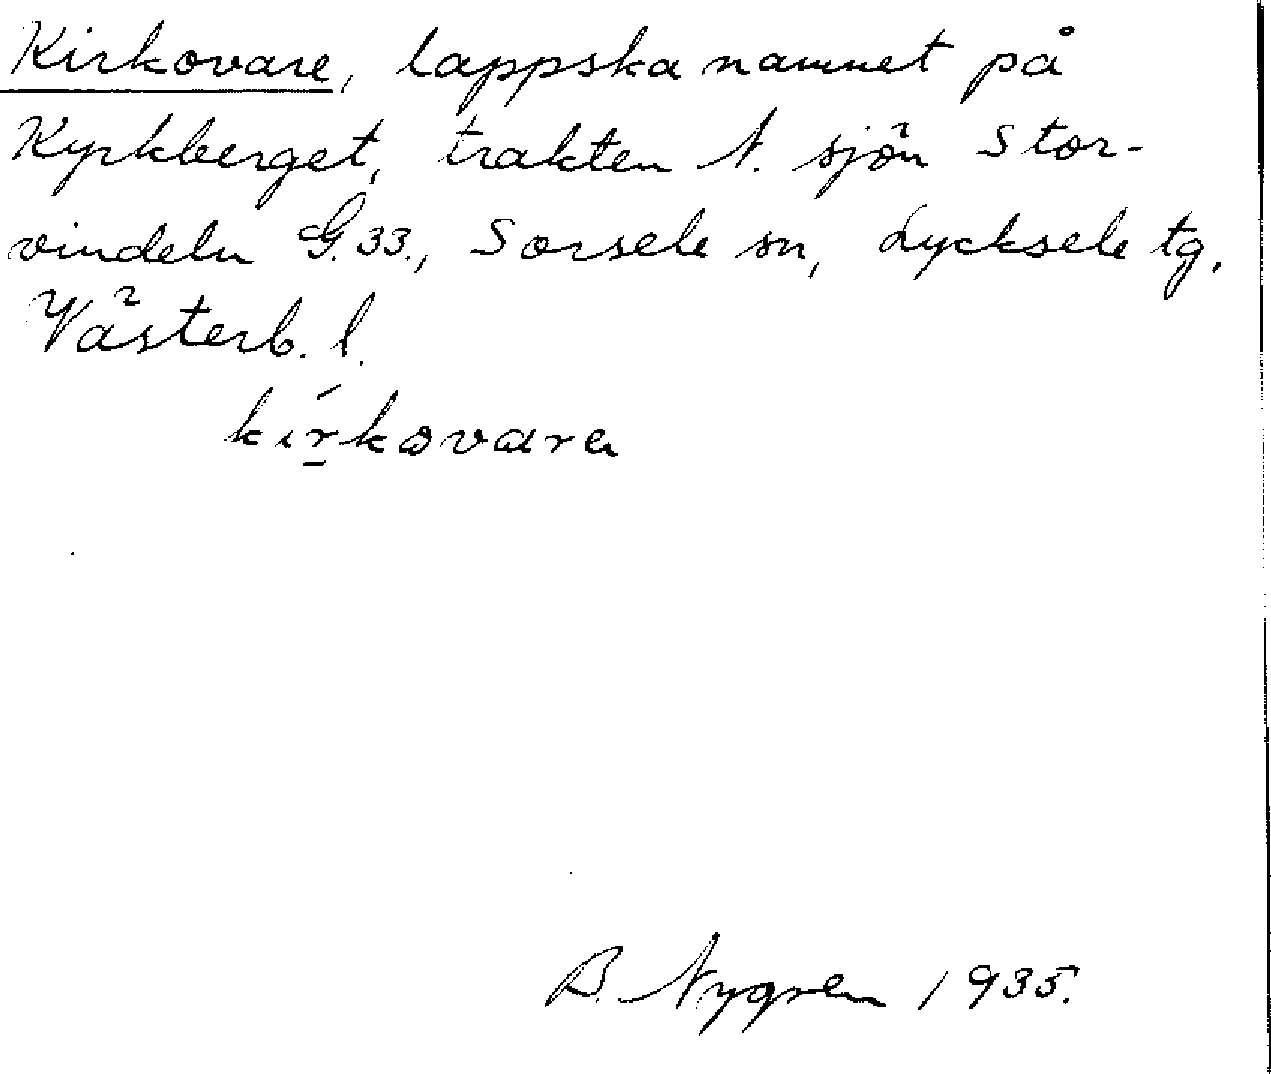 Kirkovare, lappska namnet på
Kyrkberget, trakten N. sjön Stor-
vindeln G.33., Sorsele sn, Lycksele tg.
Västerb. l.
kírkovara
B. Nygren 1935.